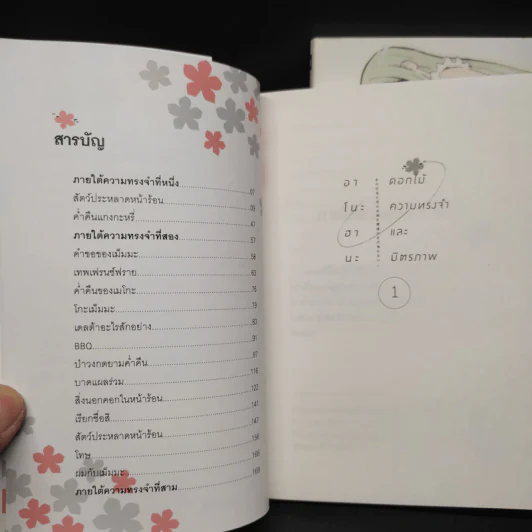 สารบัญ
ภายใต้ความทรงจำที่หนึ่ง
สัตว์ประหลาดหน้าร้อน
ค่ำคืนแกงกะหรี่
ภายใต้ความทรงจำที่สอง
คำขอของเม็มมะ
เทพเฟรนช์ฟราย
ค่ำคืนของเมโกะ
โกะเม็มมะ
เดลต้าอะไรสักอย่าง
BBQ 91
ป่าวงกตยามค่ำคืน
บาดแผลร่วม 116
สิ่งนอกคอกในหน้าร้อน
เรียกชื่อสิ 141
สัตว์ประหลาดหน้าร้อน 147
โทษ
ผมกับเม็มมะ
ภายใต้ความทรงจำที่สาม
ฮา ดอกไม้
โนะ ความทรงจำ
ฮา และ
นะ มิตรภาพ
1